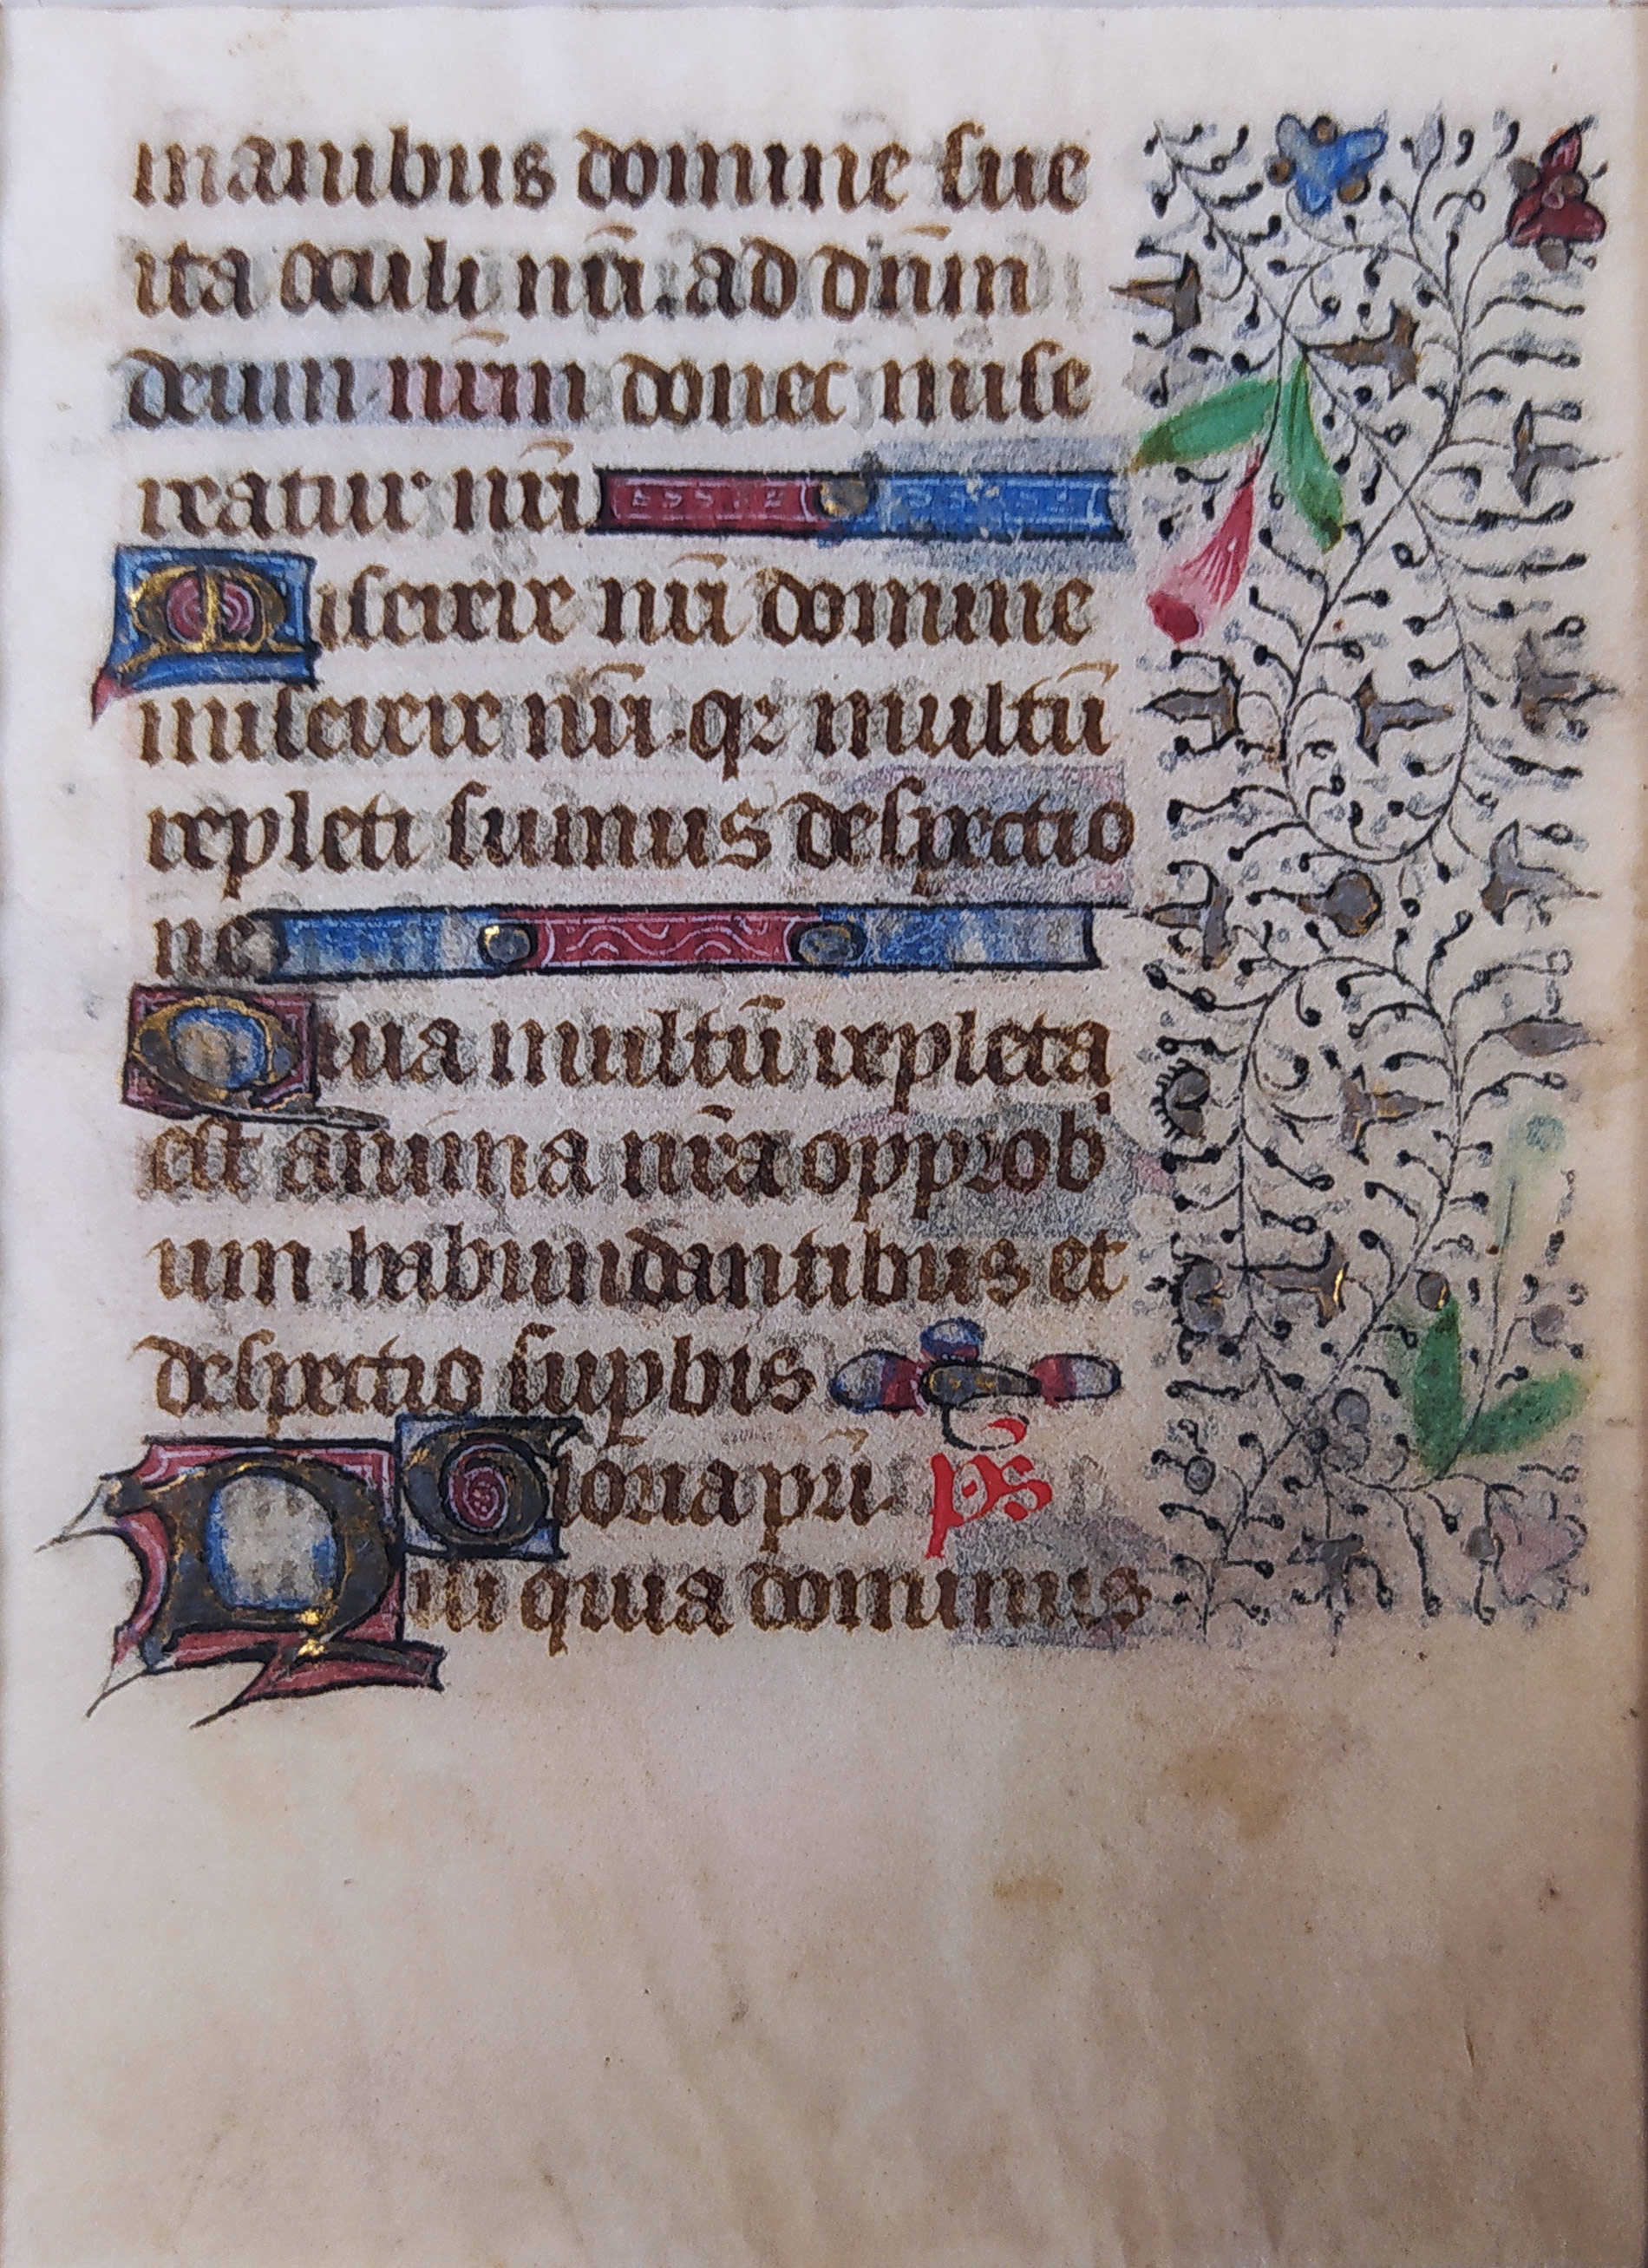 manibus domine sue
ita oculi nr̄i. ad dn̄m
deum nr̄m donec mise
reatur nr̄i
Miserere nr̄i domine
miserere nr̄i. qꝛ multū
repleti sumus despectio
ne
Quia multū repleta
est anima nr̄a opprob
um habundantibus et
despectio supbis
Gloria pr̄i. p̄s
Nisi quia dominus